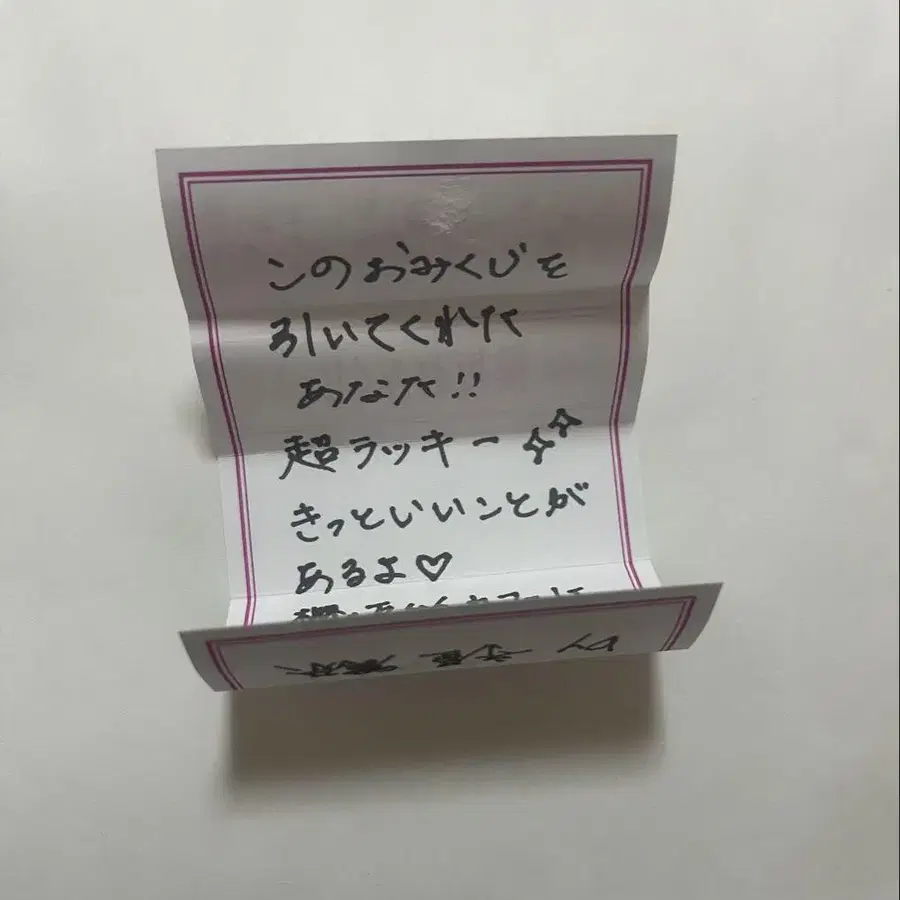 このおみくじを
引いてくれた
あなた!!
超ラッキー
きっといいことが
あるよ♡
by